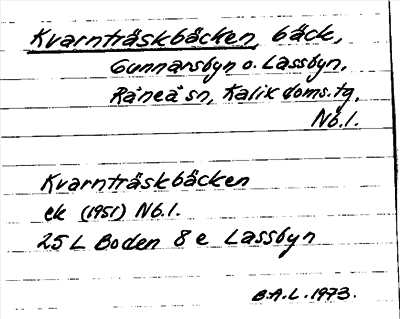 Kvarnträskbäcken, bäck,
Gunnarsbyn o. Lassbyn,
Råneå sn, Kalix doms.tg,
Nb.l.
Kvarnträskbäcken
ek (1951) Nb.l.
25 L Boden 8 e Lassbyn
B.A.L. 1973.